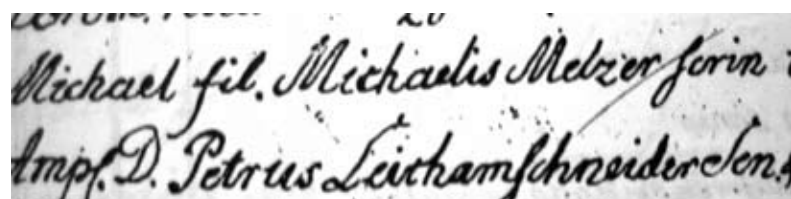 Michael fil. Michaelis Melzer
Ampl. D. Petrus Leithamschneider Sen.